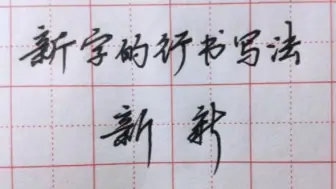 新字的行书写法
新 新